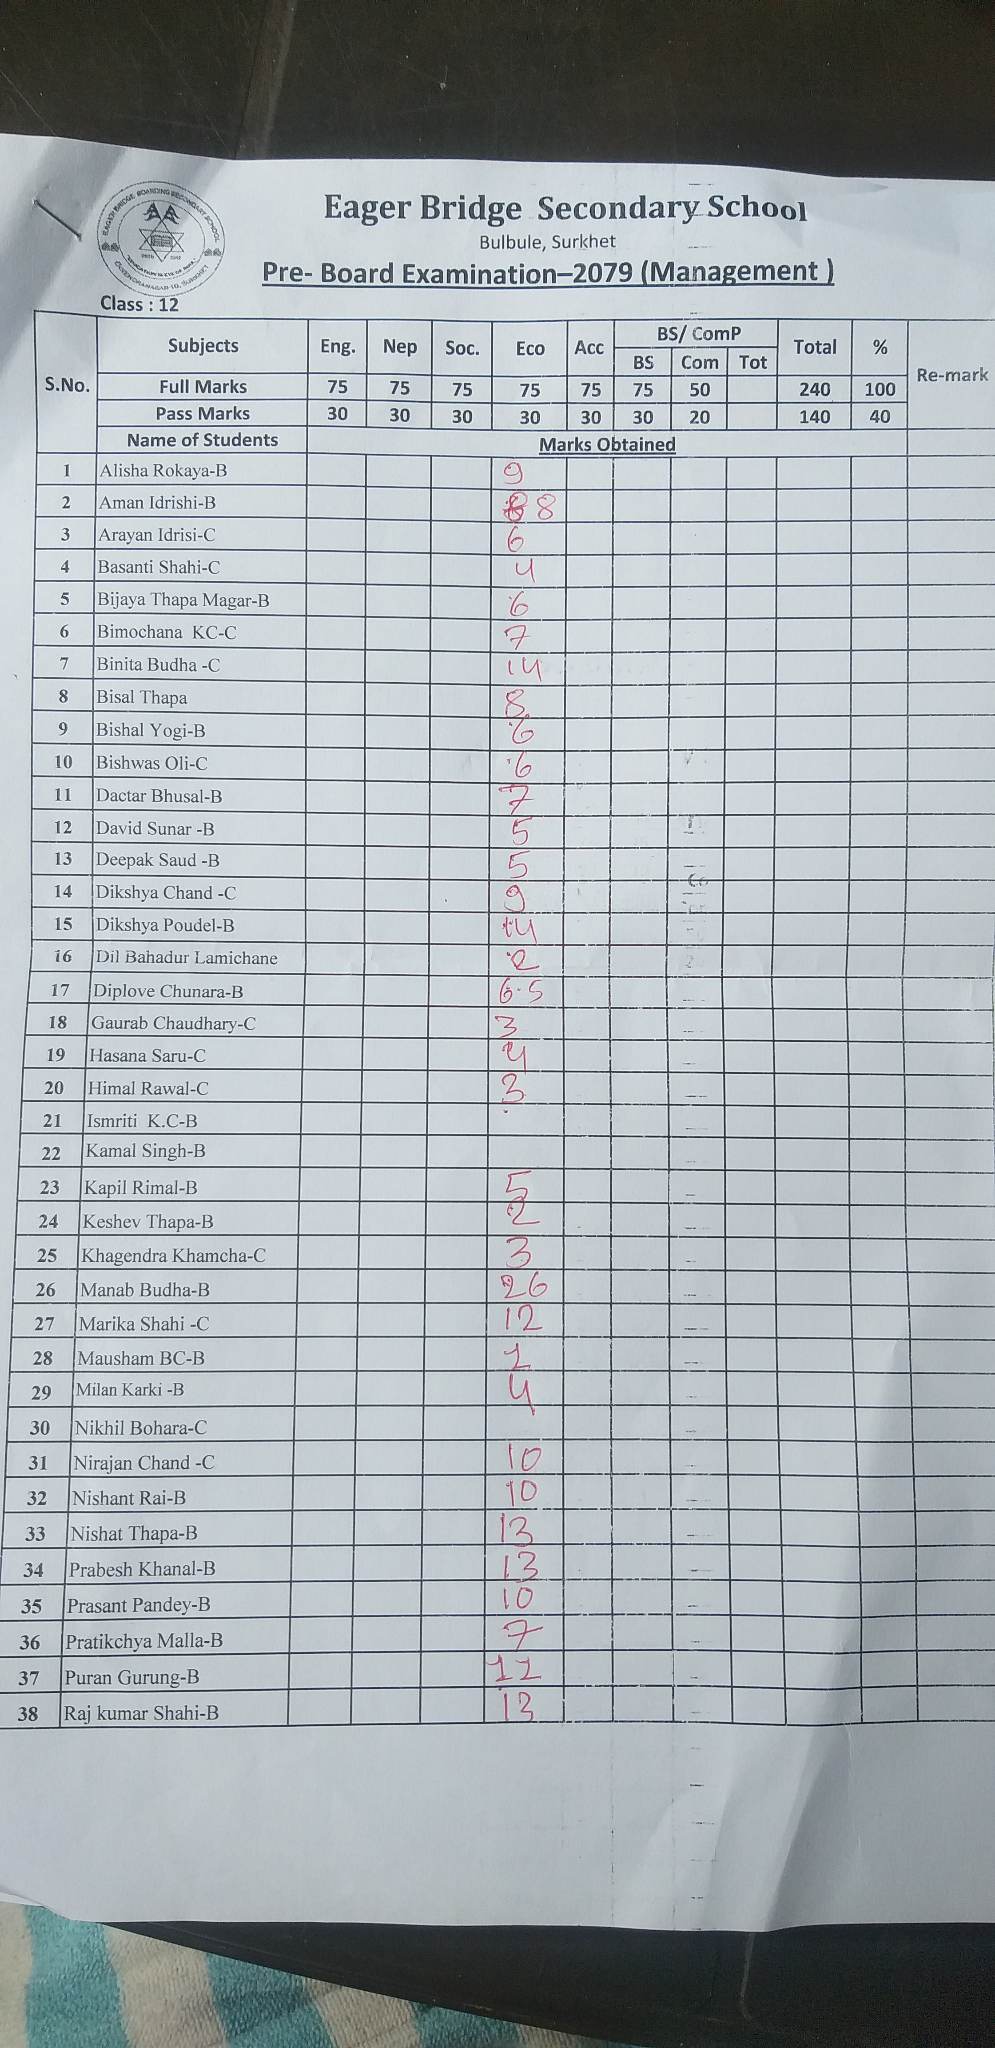 EAGER BRIDGE BOARDING SECONDARY SCHOOL
Eager Bridge Secondary School
Bulbule, Surkhet
Pre- Board Examination–2079 (Management )
Class : 12
S.No. Subjects Eng. Nep Soc. Eco Acc BS/ ComP Total % Re-mark
BS Com Tot
Full Marks 75 75 75 75 75 75 50 240 100
Pass Marks 30 30 30 30 30 30 20 140 40
Name of Students Marks Obtained
1 Alisha Rokaya-B 9
2 Aman Idrishi-B 8
3 Arayan Idrisi-C 6
4 Basanti Shahi-C 4
5 Bijaya Thapa Magar-B 6
6 Bimochana KC-C 7
7 Binita Budha -C 14
8 Bisal Thapa 8
9 Bishal Yogi-B 6
10 Bishwas Oli-C 6
11 Dactar Bhusal-B 7
12 David Sunar -B 5
13 Deepak Saud -B 5
14 Dikshya Chand -C 9
15 Dikshya Poudel-B 14
16 Dil Bahadur Lamichane 2
17 Diplove Chunara-B 6.5
18 Gaurab Chaudhary-C 3
19 Hasana Saru-C 4
20 Himal Rawal-C 3
21 Ismriti K.C-B
22 Kamal Singh-B
23 Kapil Rimal-B 5
24 Keshev Thapa-B 2
25 Khagendra Khamcha-C 3
26 Manab Budha-B 26
27 Marika Shahi -C 12
28 Mausham BC-B 1
29 Milan Karki -B 4
30 Nikhil Bohara-C
31 Nirajan Chand -C 10
32 Nishant Rai-B 10
33 Nishat Thapa-B 13
34 Prabesh Khanal-B 13
35 Prasant Pandey-B 10
36 Pratikchya Malla-B 7
37 Puran Gurung-B 11
38 Raj kumar Shahi-B 13